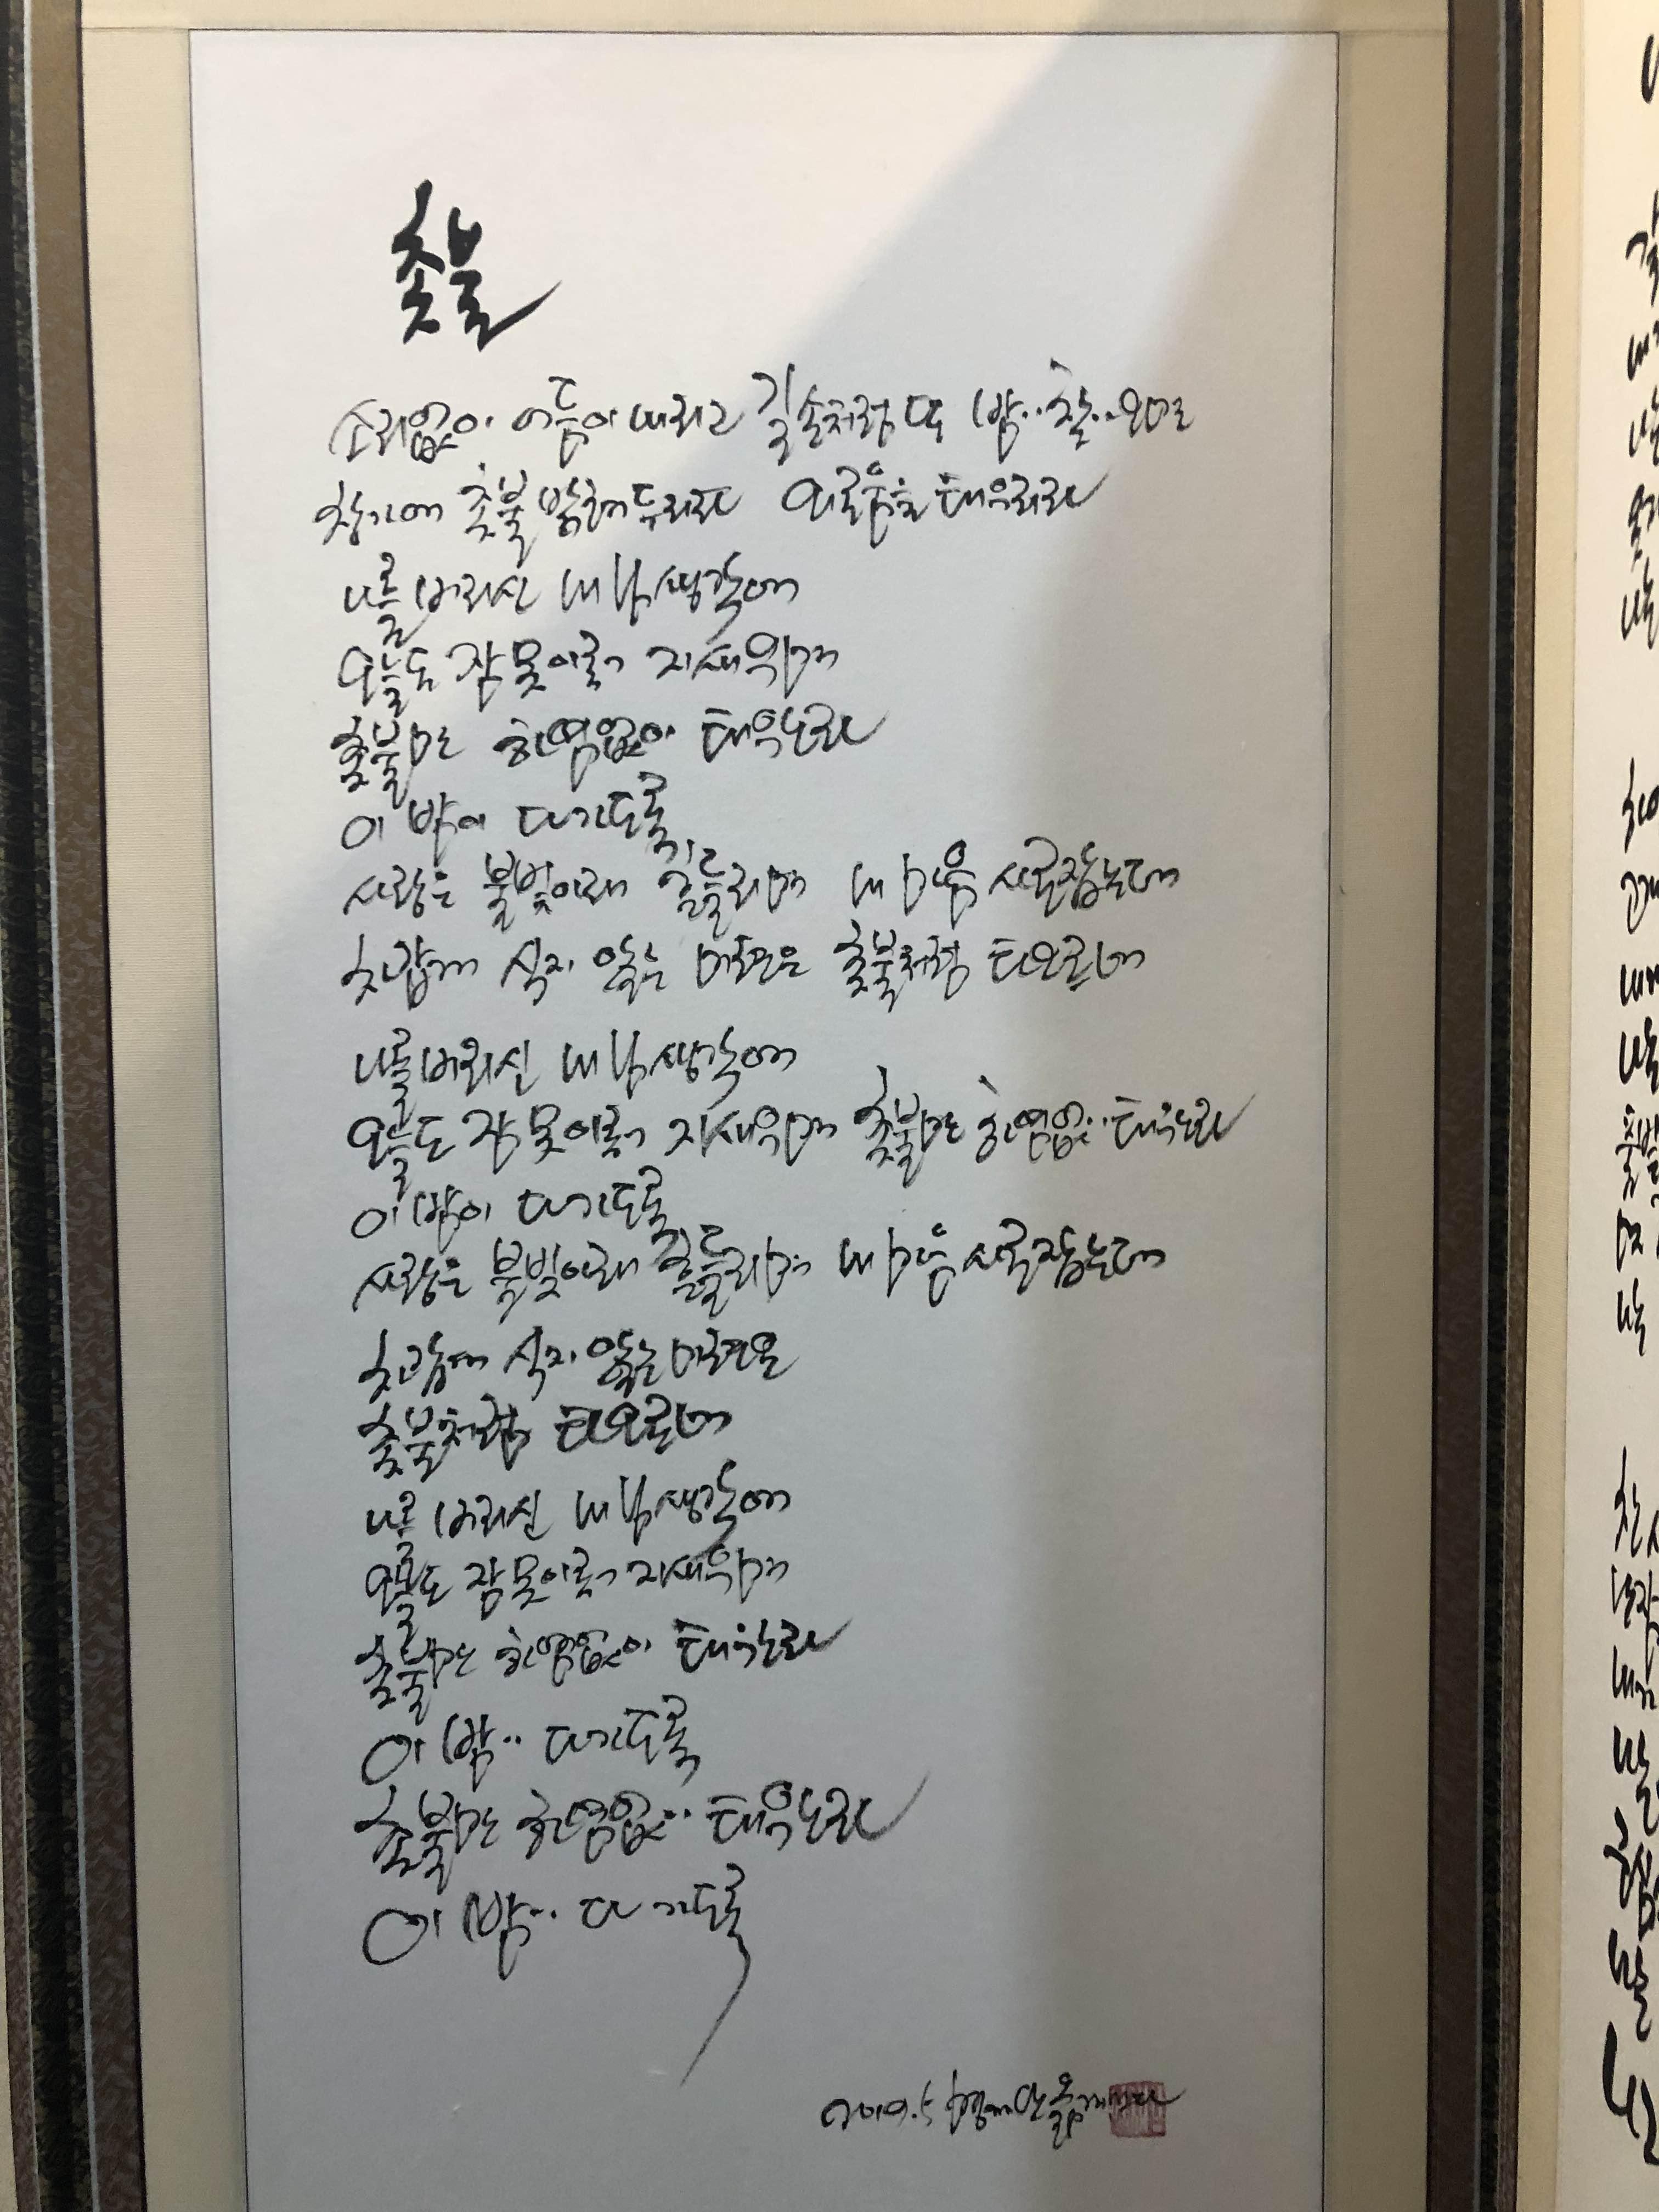 촛불
소리없이 어둠이 내리고 길손처럼 또 밤이 찾아오면
창가에 촛불 밝혀두리라 외로움을 태우리라
나를 버리신 내 님 생각에
오늘도 잠 못 이뤄 지새우며
촛불만 하염없이 태우노라
이 밤이 다 가도록
사랑은 불빛아래 흔들리며 내 마음 사로잡는데
차갑게 식지 않는 미련은 촛불처럼 타오르네
나를 버리신 내 님 생각에
오늘도 잠 못 이뤄 지새우며 촛불만 하염없이 태우노라
이 밤이 다 가도록
사랑은 불빛아래 흔들리며 내 마음 사로잡는데
차갑게 식지 않는 미련은
촛불처럼 타오르네
나를 버리신 내 님 생각에
오늘도 잠 못 이뤄 지새우며
촛불만 하염없이 태우노라
이 밤이 다 가도록
촛불만 하염없이 태우노라
이 밤이 다 가도록
2019.5